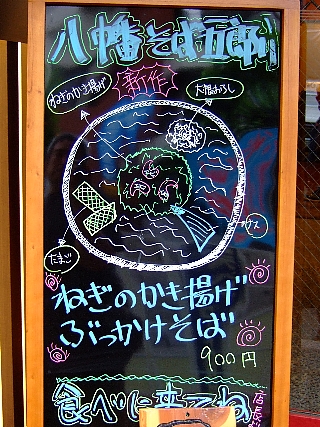 八幡そば五郎
新作
ねぎのかき揚げ
大根おろし
たまご
ねぎのかき揚げ
ぶっかけそば
900円
食べに来てね
店長